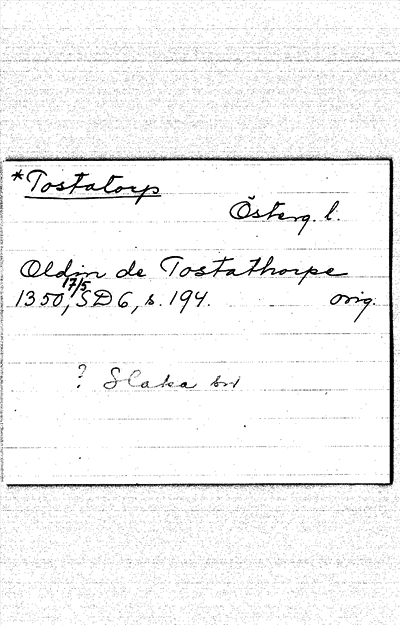 *Tostatorp
Österg. l.
Oldin de Tostathorpe
1350, 17/5, SD 6, s. 194. orig.
? Slaka sn